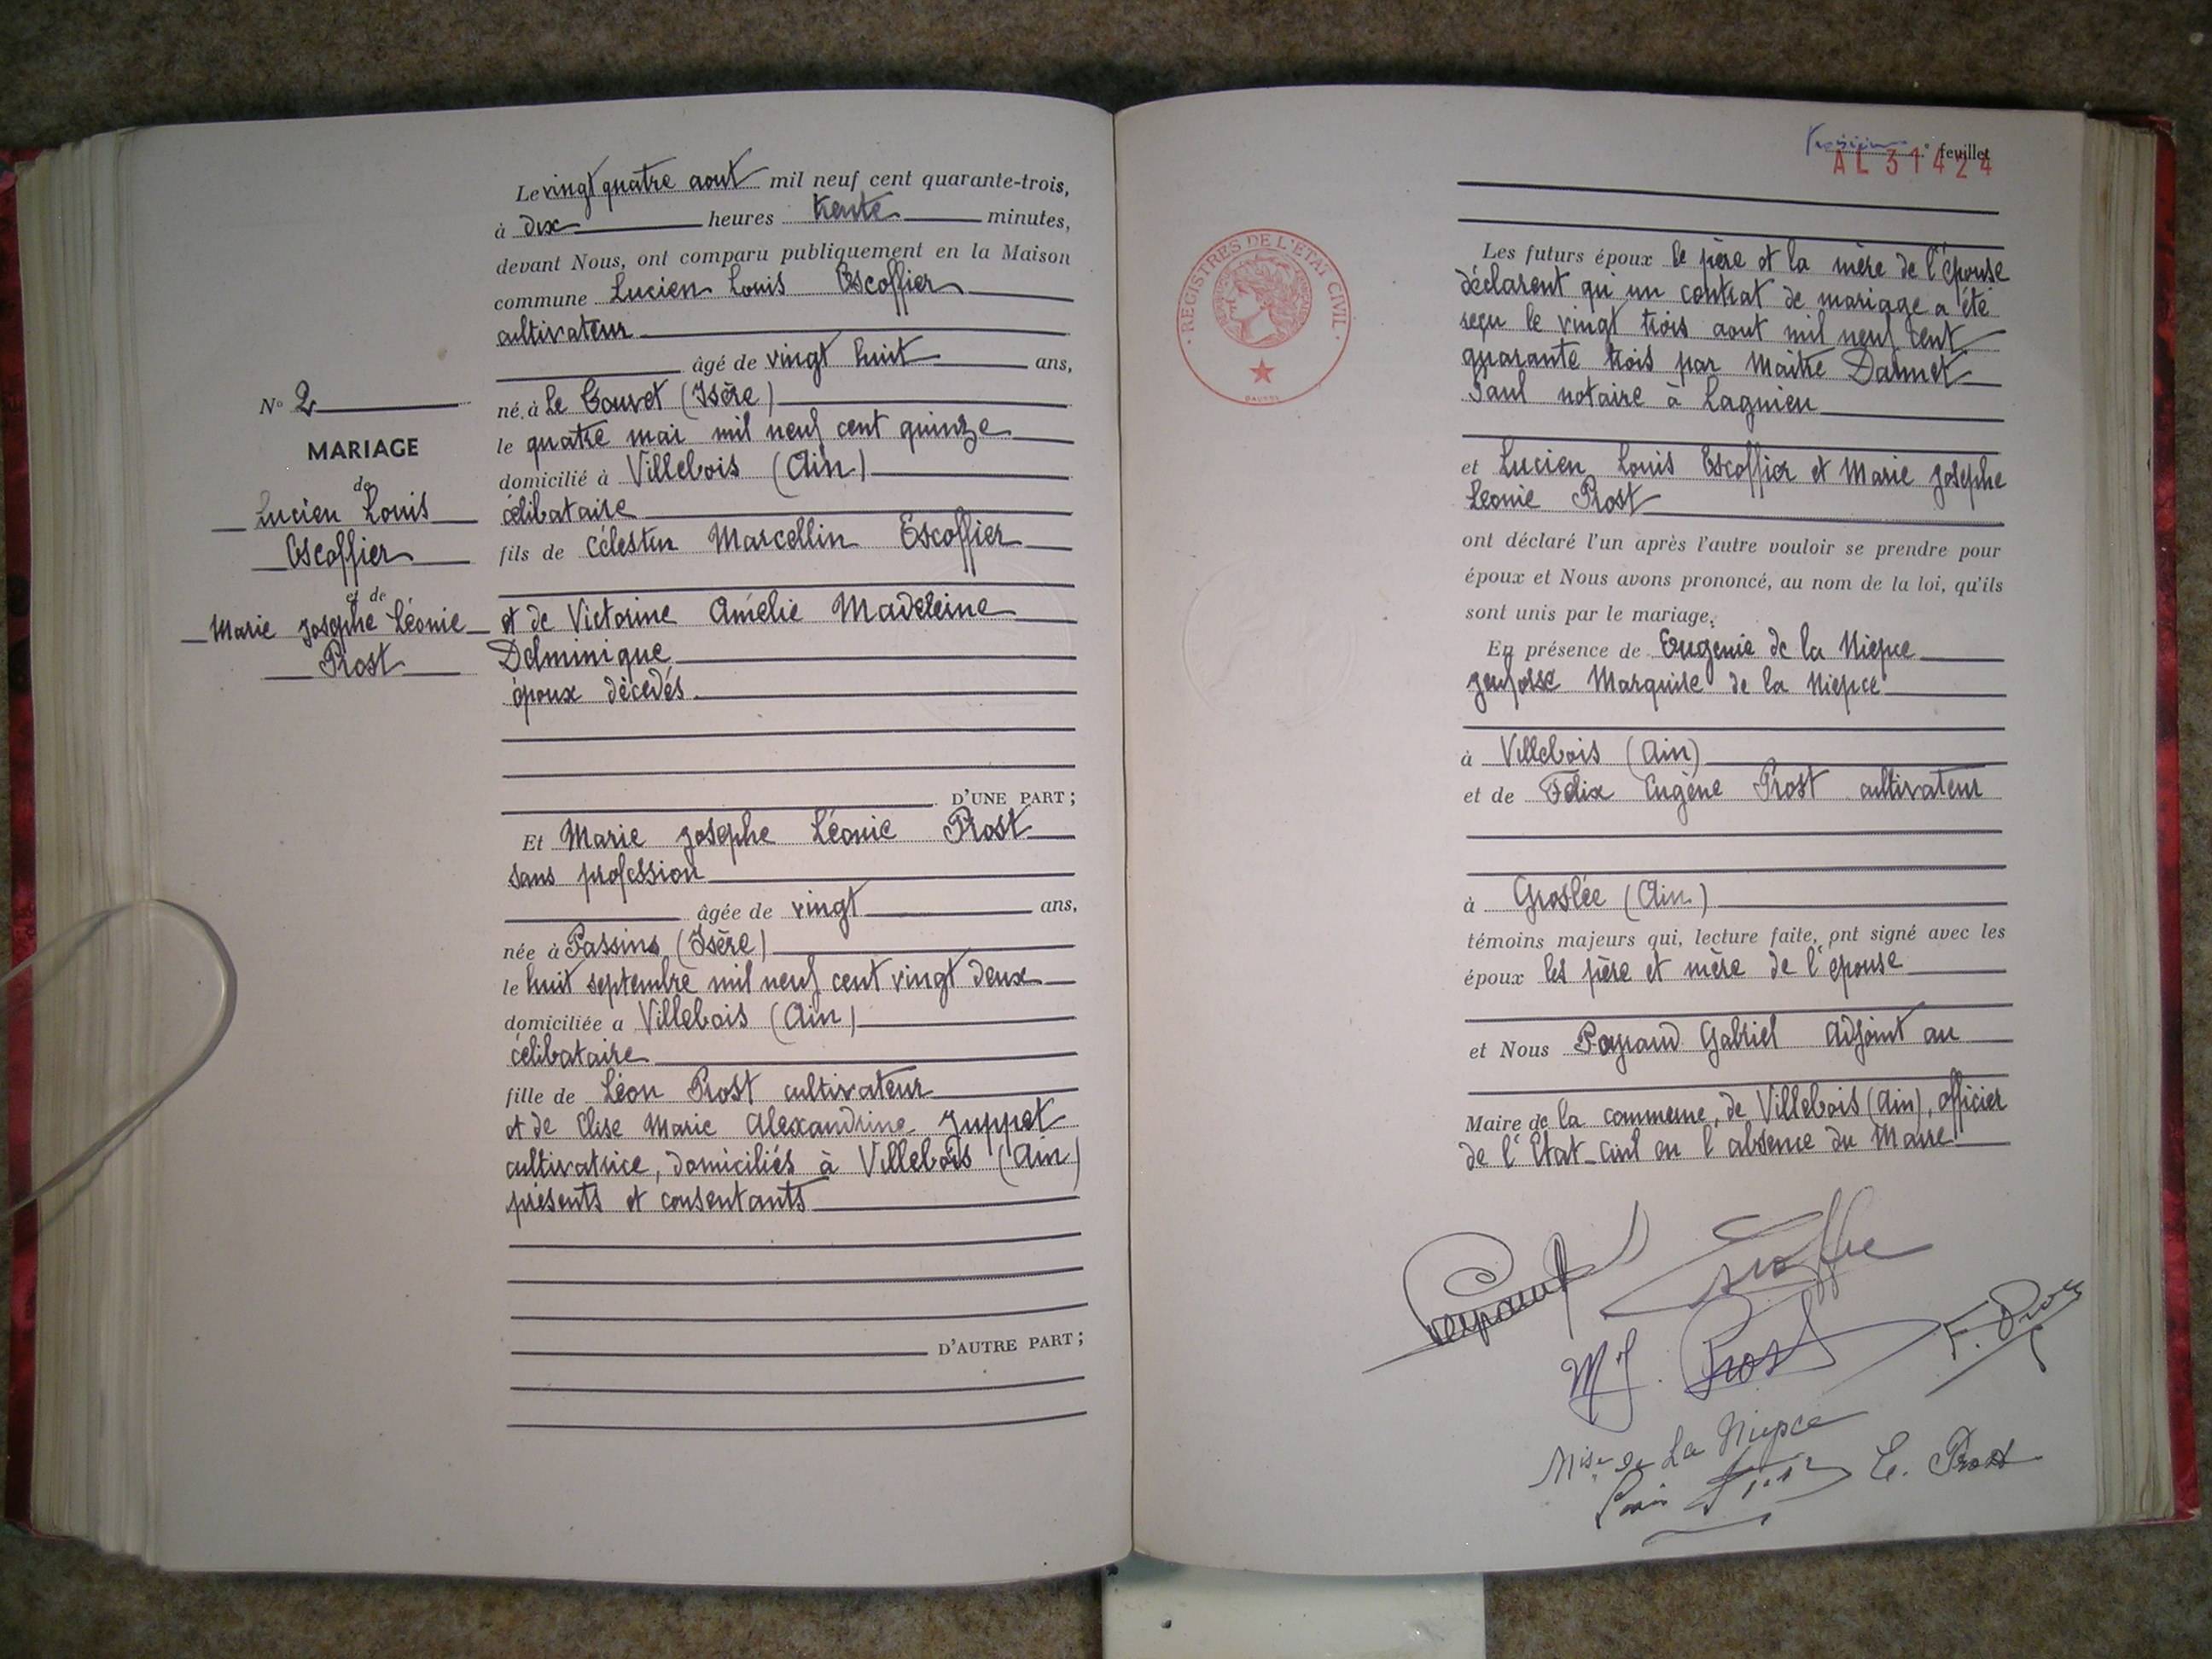 Le vingt quatre aout mil neuf cent quarante-trois,
à dix heures trente minutes,
devant Nous, ont comparu publiquement en la Maison
commune Lucien Louis Escoffier
cultivateur
âgé de vingt huit ans,
né à Le Touvet (Isère)
le quatre mai mil neuf cent quinze
domicilié à Villebois (Ain)
célibataire
fils de Célestin Marcellin Escoffier
et de Victorine Amélie Madeleine
Delminique
époux décédés.
D'UNE PART ;
N° 2
MARIAGE
de
Lucien Louis
Escoffier
et de
Marie Josephe Léonie
Prost
Et Marie Josephe Léonie Prost
sans profession
âgée de vingt ans,
née à Passins (Isère)
le huit septembre mil neuf cent vingt deux
domiciliée a Villebois (Ain)
célibataire
fille de Léon Prost cultivateur
et de Elise Marie Alexandrine Juppet
cultivatrice, domiciliés à Villebois (Ain)
présents et consentants
D'AUTRE PART ;
feuillet
AL 31424
REGISTRES DE L'ÉTAT CIVIL
Les futurs époux le père et la mère de l'épouse
déclarent qu'un contrat de mariage a été
reçu le vingt trois aout mil neuf cent
quarante trois par Maitre Damet
Paul notaire à Lagnieu
et Lucien Louis Escoffier et Marie Josephe
Léonie Prost
ont déclaré l'un après l'autre vouloir se prendre pour
époux et Nous avons prononcé, au nom de la loi, qu'ils
sont unis par le mariage.
En présence de Eugenie de la Niepce
Marquise de la Niepce
à Villebois (Ain)
et de Félix Eugène Prost cultivateur
à Groslée (Ain)
témoins majeurs qui, lecture faite, ont signé avec les
époux les père et mère de l'épouse
et Nous Payraud Gabriel Adjoint au
Maire de la commune, de Villebois (Ain), officier
de l'Etat-Civil en l'absence du Maire
Escoffier
M J. Prost
de La Niepce
L. Prost